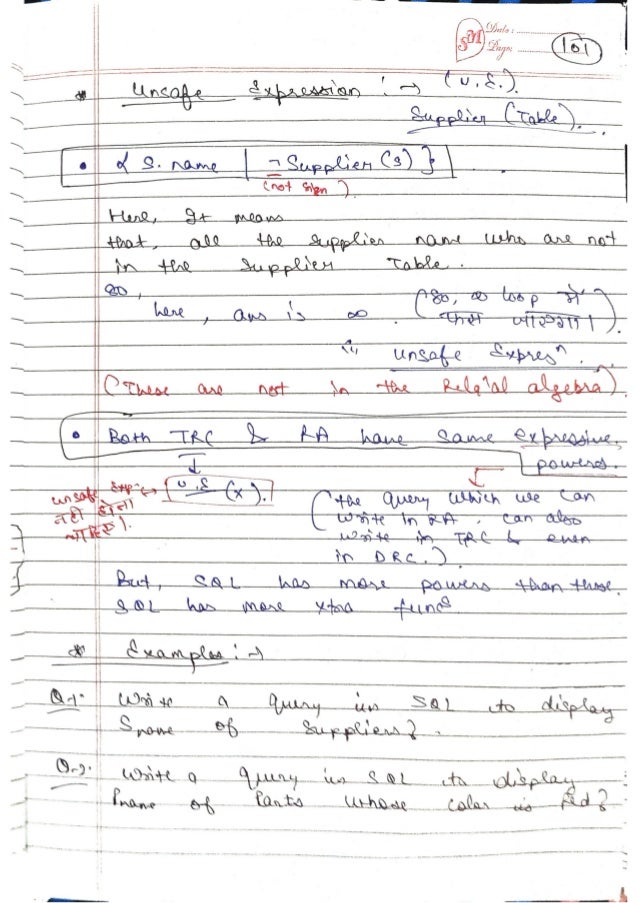 SM Date:
Page: 101
* Unsafe Expression :→ (U.E.).
Supplier (Table).
• { S.name | ¬Supplier(s) }
(not sign)
Here, It means
that, all the supplier name who are not
in the supplier Table.
so,
here, ans is ∞. (So, ∞ loop में
फास जाएगा।)
unsafe Expresⁿ.
(These are not in the Relⁿal algebra)
• Both TRC & RA have same expressive
powers.
↓
U.E (x).
unsafe Exp:→
नही होना
चाहिए).
(the query which we can
write in RA, can also
write in TRC & even
in DRC.)
But, SQL has more powers than those.
SQL has more xtra funcs
* Examples :→
Q-1. Write a query in SQL to display
Sname of Suppliers?.
Q-2. Write a query in SQL to display
Pname of Parts whose color is Red?